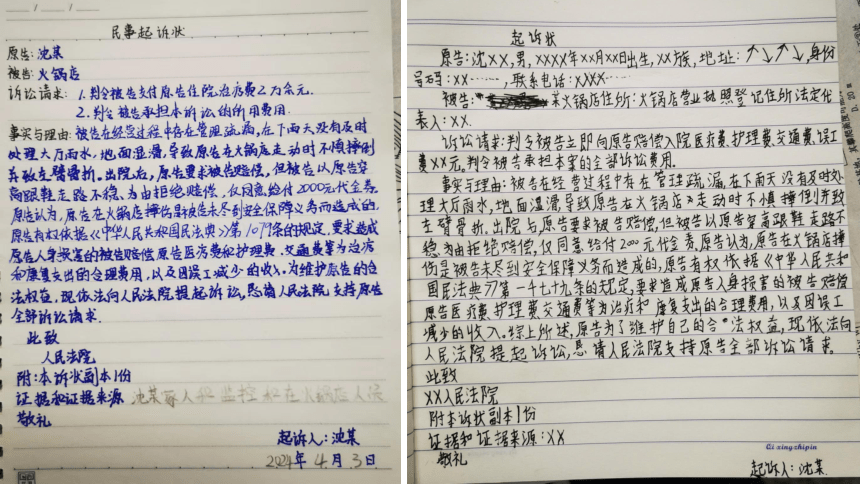 民事起诉状
原告:沈某
被告:火锅店
诉讼请求:1.判令被告支付原告住院治疗费2万余元.
2.判令被告承担本诉讼的所用费用.
事实与理由:被告在经营过程中存在管理疏漏,在下雨天没有及时
处理大厅雨水,地面湿滑,导致原告在火锅店走动时不慎摔倒
并致左臂骨折。出院后,原告要求被告赔偿,但被告以原告穿
高跟鞋走路不稳、为由拒绝赔偿,仅同意给付2000元代金券
原告认为,原告在火锅店摔伤是被告未尽到安全保障义务而造成的,
原告有权依据《中华人民共和国民法典》第1079条的规定,要求造成
原告人身损害的被告赔偿原告医疗费和护理费、交通费等为治疗
和康复支出的合理费用,以及因误工减少的收入。为维护原告的合
法权益,现依法向人民法院提起诉讼,恳请人民法院支持原告
全部诉讼请求.
此致
人民法院
附:本诉状副本1份
证据和证据来源 沈某家人和监控和在火锅店人员
敬礼
起诉人:沈某
2024年4月3日
起诉状
原告:沈XX,男,XXXX年XX月XX日出生,XX族,地址:↑↓↑↓,身份
号码:XX……,联系电话:XXX…
被告: 某火锅店住所:火锅店营业执照登记住所法定代
表人:XX.
诉讼请求:判令被告立即向原告赔偿入院医疗费、护理费、交通费、误工
费XX元。判令被告承担本案的全部诉讼费用.
事实与理由:被告在经营过程中存在管理疏漏,在下雨天没有及时处
理大厅雨水,地面湿滑导致原告在火锅店走动时不慎摔倒并致
左臂骨折.出院与原告要求被告赔偿,但被告以原告穿高跟鞋走路不
稳为由拒绝赔偿,仅同意给付200元代金券,原告认为,原告在火锅店摔
伤是被告未尽到安全保障义务而造成的,原告有权依据《中华人民共和
国民法典》第一千七十九条的规定,要求造成原告人身损害的被告赔偿
原告医疗费、护理费、交通费等为治疗和康复支出的合理费用,以及因误工
减少的收入。综上所述,原告为了维护自己的合法权益,现依法向
人民法院提起诉讼,恳请人民法院支持原告全部诉讼请求.
此致
XX人民法院
附本诉状副本1份
证据和证据来源:XX
敬礼
Qi xingzhipin
起诉人:沈某